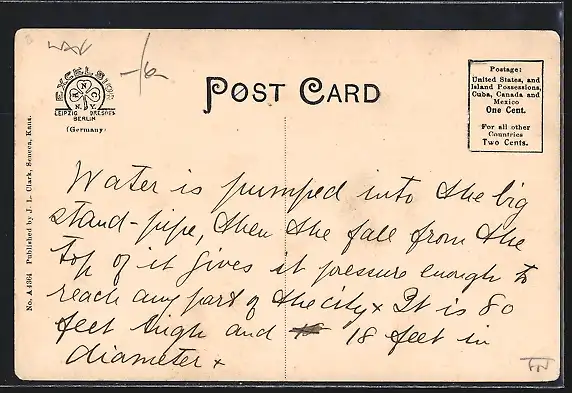 EXCELSIOR
A N C
N. Y.
LEIPZIG DRESDEN
BERLIN
(Germany)
-/6-
POST CARD
Postage:
United States, and
Island Possessions,
Cuba, Canada and
Mexico
One Cent.
For all other
Countries
Two Cents.
No. A 4364 Published by J. L. Clark, Seneca, Kans.
Water is pumped into the big
stand-pipe, then the fall from the
top of it gives it pressure enough to
reach any part of the city x It is 80
feet high and 18 feet in
diameter x